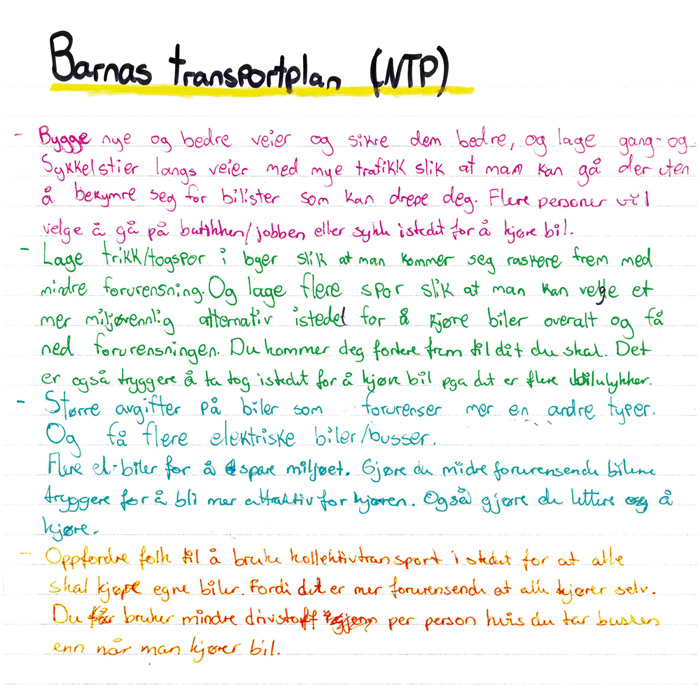 Barnas transportplan (NTP)
- Bygge nye og bedre veier og sikre dem bedre, og lage gang- og
Sykkelstier langs veier med mye trafikk slik at man kan gå der uten
å bekymre seg for bilister som kan drepe deg. Flere personer vil
velge å gå på butikken/jobben eller sykle istedet for å kjøre bil.
- Lage trikk/togspor i byer slik at man kommer seg raskere frem med
mindre forurensning. Og lage flere spor slik at man kan velge et
mer miljøvennlig alternativ istedet for å kjøre biler overalt og få
ned forurensningen. Du kommer deg fortere frem til dit du skal. Det
er også tryggere å ta tog istedet for å kjøre bil pga det er flere bilulykker.
- Større avgifter på biler som forurenser mer en andre typer.
Og få flere elektriske biler/busser.
Flere el-biler for å spare miljøet. Gjøre de midre forurensende bilene
tryggere for å bli mer attraktiv for kjøren. Også gjøre de lettere å
kjøre.
- Oppfordre folk til å bruke kollektivtransport i stedet for at alle
skal kjøpe egne biler. Fordi det er mer forurensende at alle kjører selv.
Du bruker mindre drivstoff per person hvis du tar bussen
enn når man kjører bil.